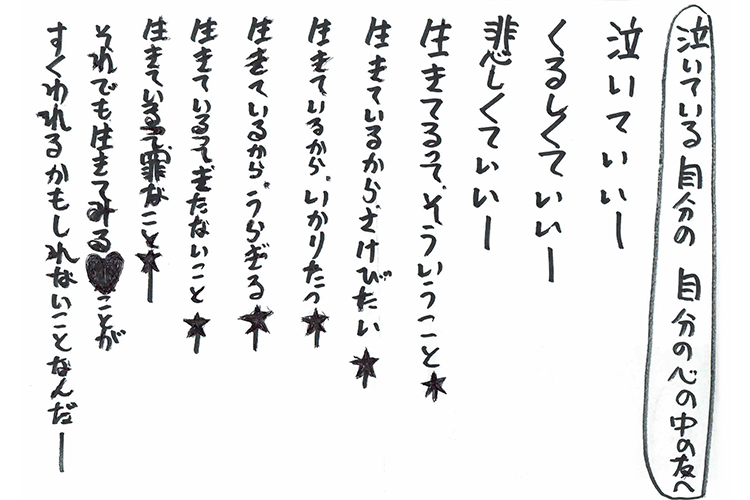 泣いている自分の 自分の心の中の友へ
泣いていいー
くるしくていいー
悲しくていいー
生きてるって、そういうこと★
生きているから、さけびたい★ー
生きているから、いかりたつ★ー
生きているから、うらぎる★ー
生きているって、きたないこと★ー
生きているって、罪なこと★ー
それでも、生きてみる♥ことが
すくわれるかもしれないことなんだー